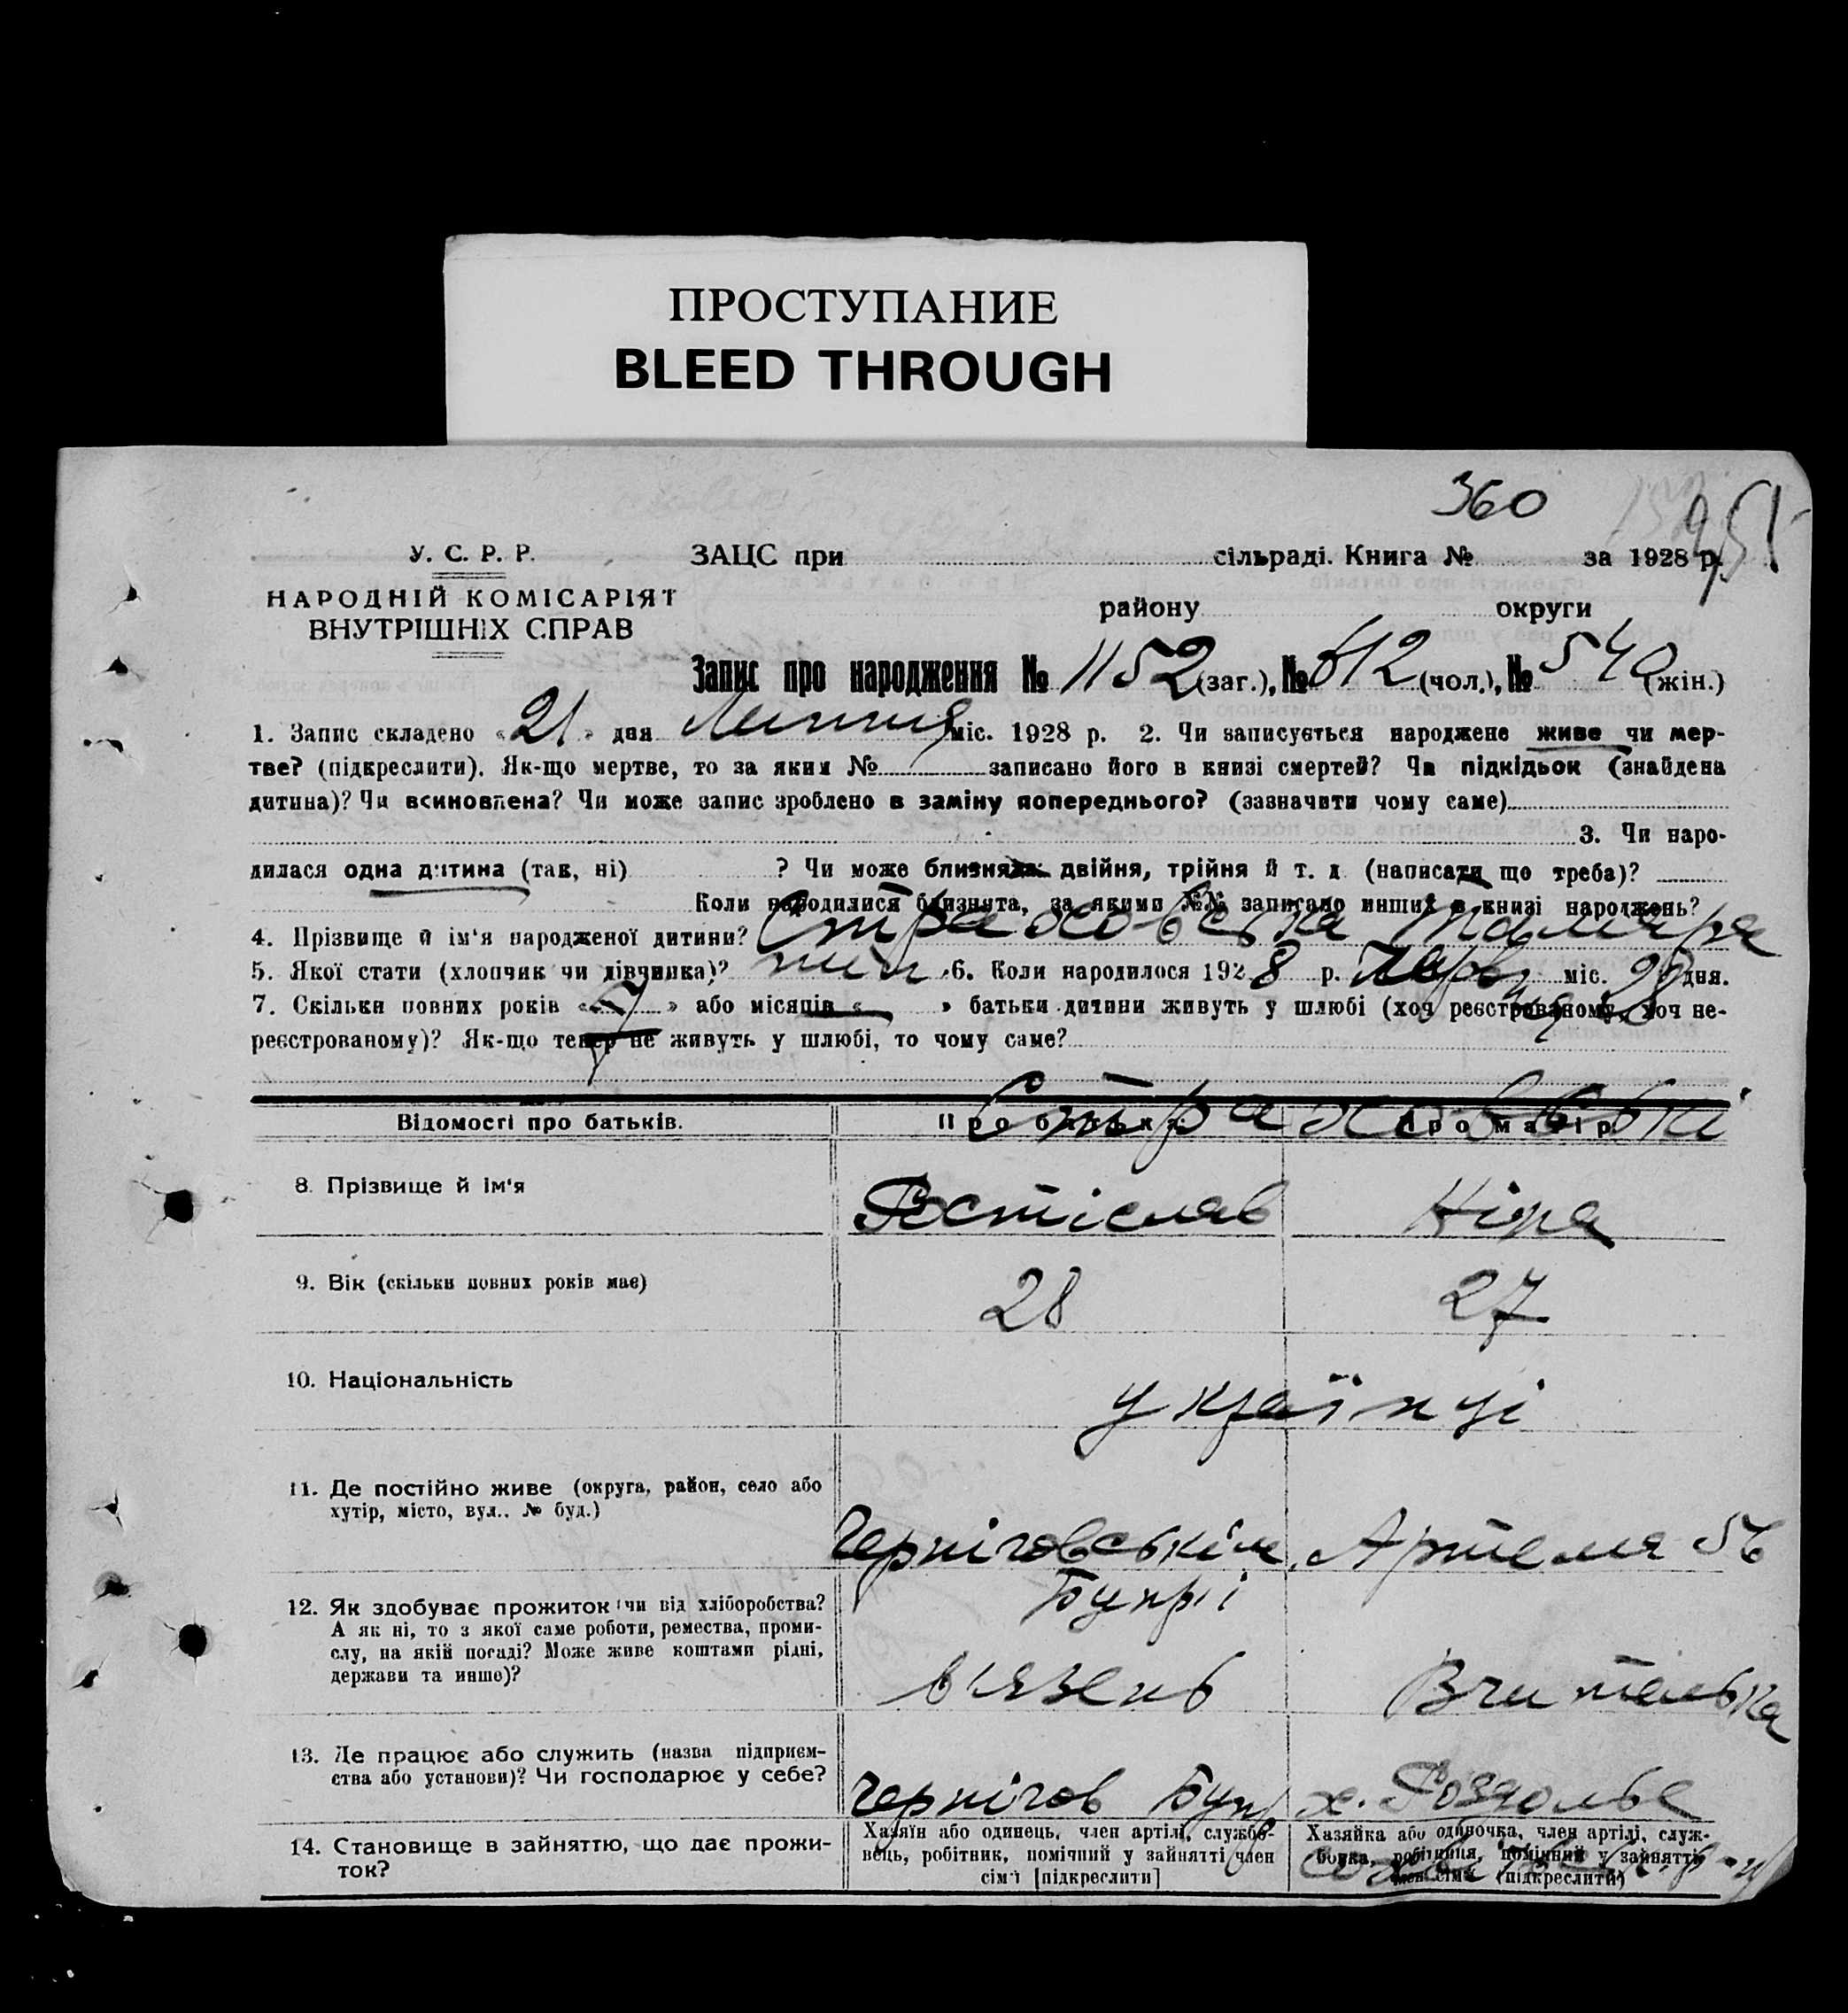 ПРОСТУПАНИЕ
BLEED THROUGH
360
У. С. Р. Р.
ЗАЦС при сільраді. Книга № за 1928 р.
НАРОДНІЙ КОМІСАРІЯТ
ВНУТРІШНІХ СПРАВ
району округи
Запис про народження № 1152 (заг.), № 612 (чол.), № 540 (жін.)
1. Запис складено «21» дня Липня міс. 1928 р. 2. Чи записується народжене живе чи мер-
тве? (підкреслити). Як-що мертве, то за яким № записано його в книзі смертей? Чи підкідьок (знайдена
дитина)? Чи всиновлена? Чи може запис зроблено в заміну попереднього? (зазначити чому саме)
3. Чи наро-
дилася одна дитина (так, ні) ? Чи може близнята: двійня, трійня й т. д. (написати що треба)?
Коли народилися близнята, за якими №№ записано инших в книзі народжень?
4. Прізвище й ім'я народженої дитини? Страховська Тамара
5. Якої стати (хлопчик чи дівчинка)? жін. 6. Коли народилося 1928 р. міс. дня.
7. Скільки повних років « » або місяців « » батьки дитини живуть у шлюбі (хоч реєстрованому, хоч не-
реєстрованому)? Як-що тепер не живуть у шлюбі, то чому саме?
Страховські
Відомості про батьків. Про батька. Про матір.
8. Прізвище й ім'я Ростіслав Ніна
9. Вік (скільки повних років має) 28 27
10. Національність українці
11. Де постійно живе (округа, район, село або
хутір, місто, вул.. № буд.)
Черніговськім Артема 56
Бупрі
12. Як здобуває прожиток (чи від хліборобства?
А як ні, то з якої саме роботи, ремества, проми-
слу, на якій посаді? Може живе коштами рідні,
держави та инше)?
в'язень Вчителька
13. Де працює або служить (назва підприєм-
ства або установи)? Чи господарює у себе?
Чернігов Бупр х. Роздолье
14. Становище в зайняттю, що дає прожи-
ток?
Хазяїн або одинець, член артілі, службо-
вець, робітник, помічний у зайнятті член
сім'ї [підкреслити]
Хазяйка або одиночка, член артілі, служ-
бовка, робітниця, помічний у зайнятті
член сім'ї (підкреслити)